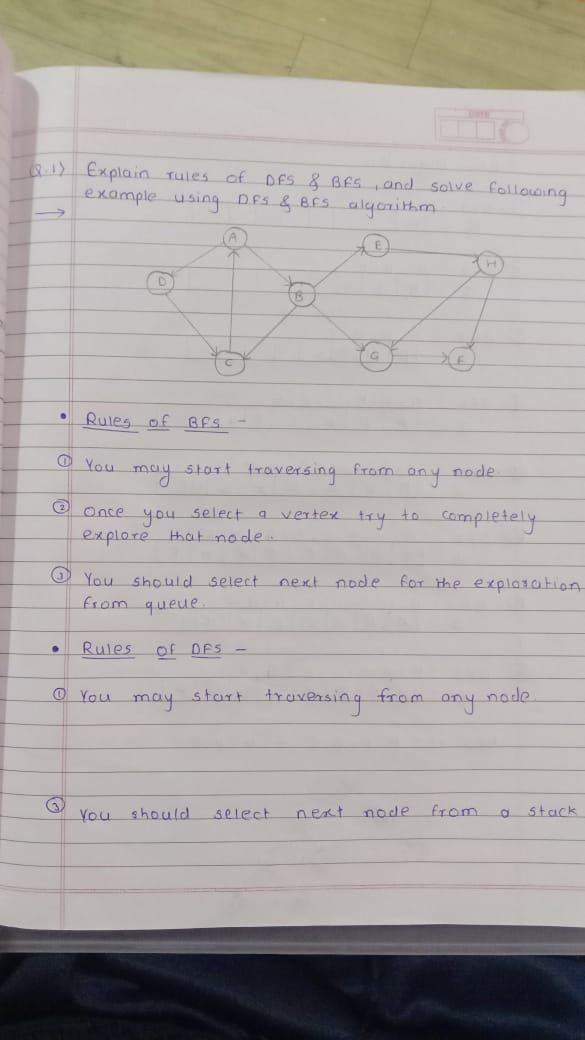 DATE
Q.1) Explain rules of DFS & BFS, and solve following
example using DFS & BFS algorithm
A
E
H
D
B
C
G
F
• Rules of BFS -
① You may start traversing from any node.
② Once you select a vertex try to completely
explore that node..
③ You should select next node for the exploration
from queue.
• Rules of DFS -
① You may start traversing from any node.
③ You should select next node from a stack